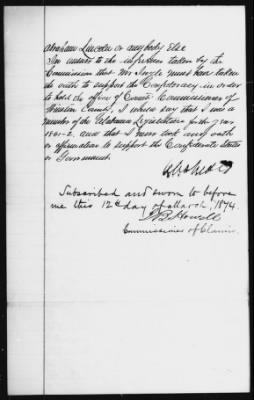 Abraham Lincoln or any body Else
In answer to the information taken by the
Commission that Mr Ingle must have taken
an oath to support the Confederacy in order
to hold the office of County Commissioner of
Winston County, I would say that I was a
member of the Alabama Legislature for the year
1861-2, and that I never took any oath
or affirmation to support the Confederate States
or Government
Subscribed and sworn to before
me this 12th day of March, 1874.
Howell
Commissioner of Claims.